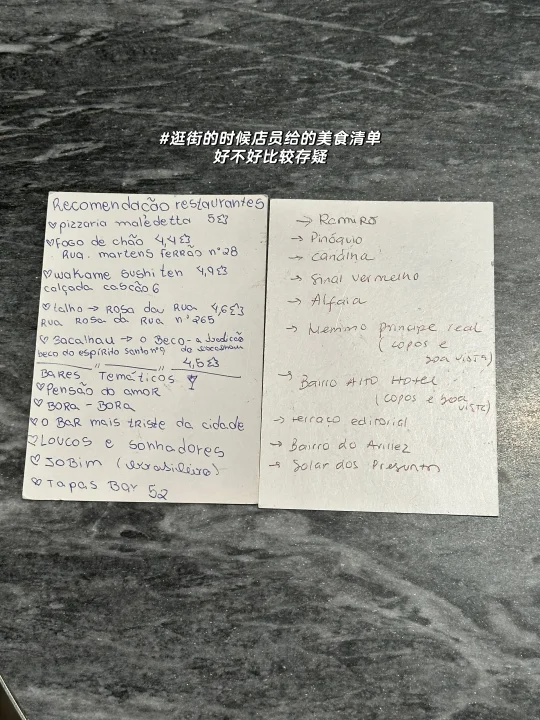 #逛街的时候店员给的美食清单
好不好比较存疑
Recomendação restaurantes
♡pizzaria maledetta 5
♡fogo de chão 4,4
Rua. martens ferrão nº28
♡wakame sushi ten 4,9
calçada cascão 6
♡talho → Rosa da Rua 4,6
Rua Rosa da Rua nº265
♡Bacalhau → o Beco - a
beco do espírito santo nº9 do bacalhau
4,5
Bares Temáticos
♡Pensão do amor
♡BORA-BORA
♡o BaR mais triste da cidade
♡Loucos e sonhadores
♡JOBim (brasileiro)
♡Tapas Bar 52
→ Ramiro
→ Pinóquio
→ canalha
→ sinal vermelho
→ Alfaia
→ Memmo principe real
(copos e
boa vista)
→ Bairro Alto Hotel
(copos e boa
vista)
→ terraço editorial
→ Bairro do Avillez
→ Solar dos Presuntos